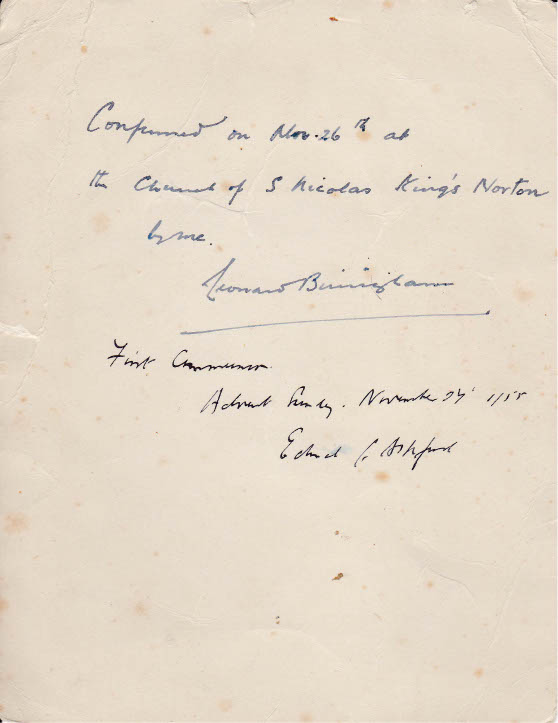 Confirmed on Nov. 26th at
the Church of S Nicolas King's Norton
by me.
Leonard Birmingham
First Communion.
Advent Sunday. November 27th 1955
Edward G. Ashford